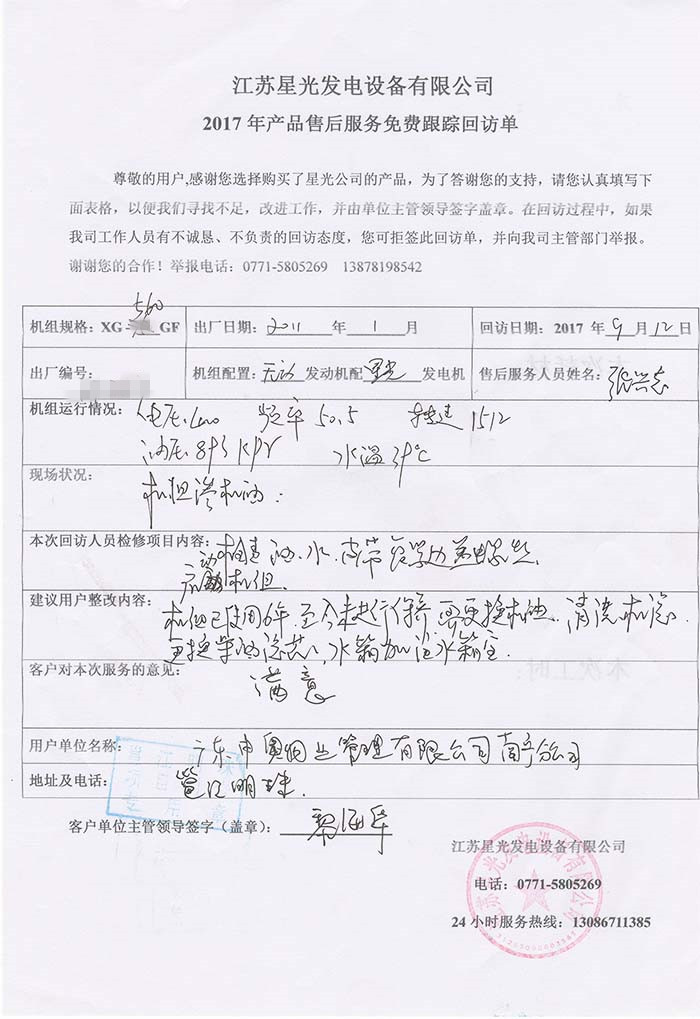 江苏星光发电设备有限公司
2017 年产品售后服务免费跟踪回访单
尊敬的用户,感谢您选择购买了星光公司的产品，为了答谢您的支持，请您认真填写下
面表格，以便我们寻找不足，改进工作，并由单位主管领导签字盖章。在回访过程中，如果
我司工作人员有不诚恳、不负责的回访态度，您可拒签此回访单，并向我司主管部门举报。
谢谢您的合作！举报电话：0771-5805269 13878198542
机组规格：XG- 560 GF 出厂日期：2011 年 1 月 回访日期：2017 年 9 月 12 日
出厂编号： 机组配置：无动 发动机配 星光 发电机 售后服务人员姓名：张兴志
机组运行情况：电压 400 频率 50.5 转速 1512
油压 KPa 水温 ℃
现场状况：
机组渗机油．
本次回访人员检修项目内容：检查油、水、皮带
启动机组．
建议用户整改内容：机组已使用6年．至今未进行保养 要更换机油．清洗机滤．
更换柴油滤芯，水箱加注水箱宝
客户对本次服务的意见：
满意
用户单位名称：广东中奥物业管理有限公司南宁分公司
地址及电话：邕江明珠．
客户单位主管领导签字（盖章）：黎海军
江苏星光发电设备有限公司
电话：0771-5805269
24 小时服务热线：13086711385